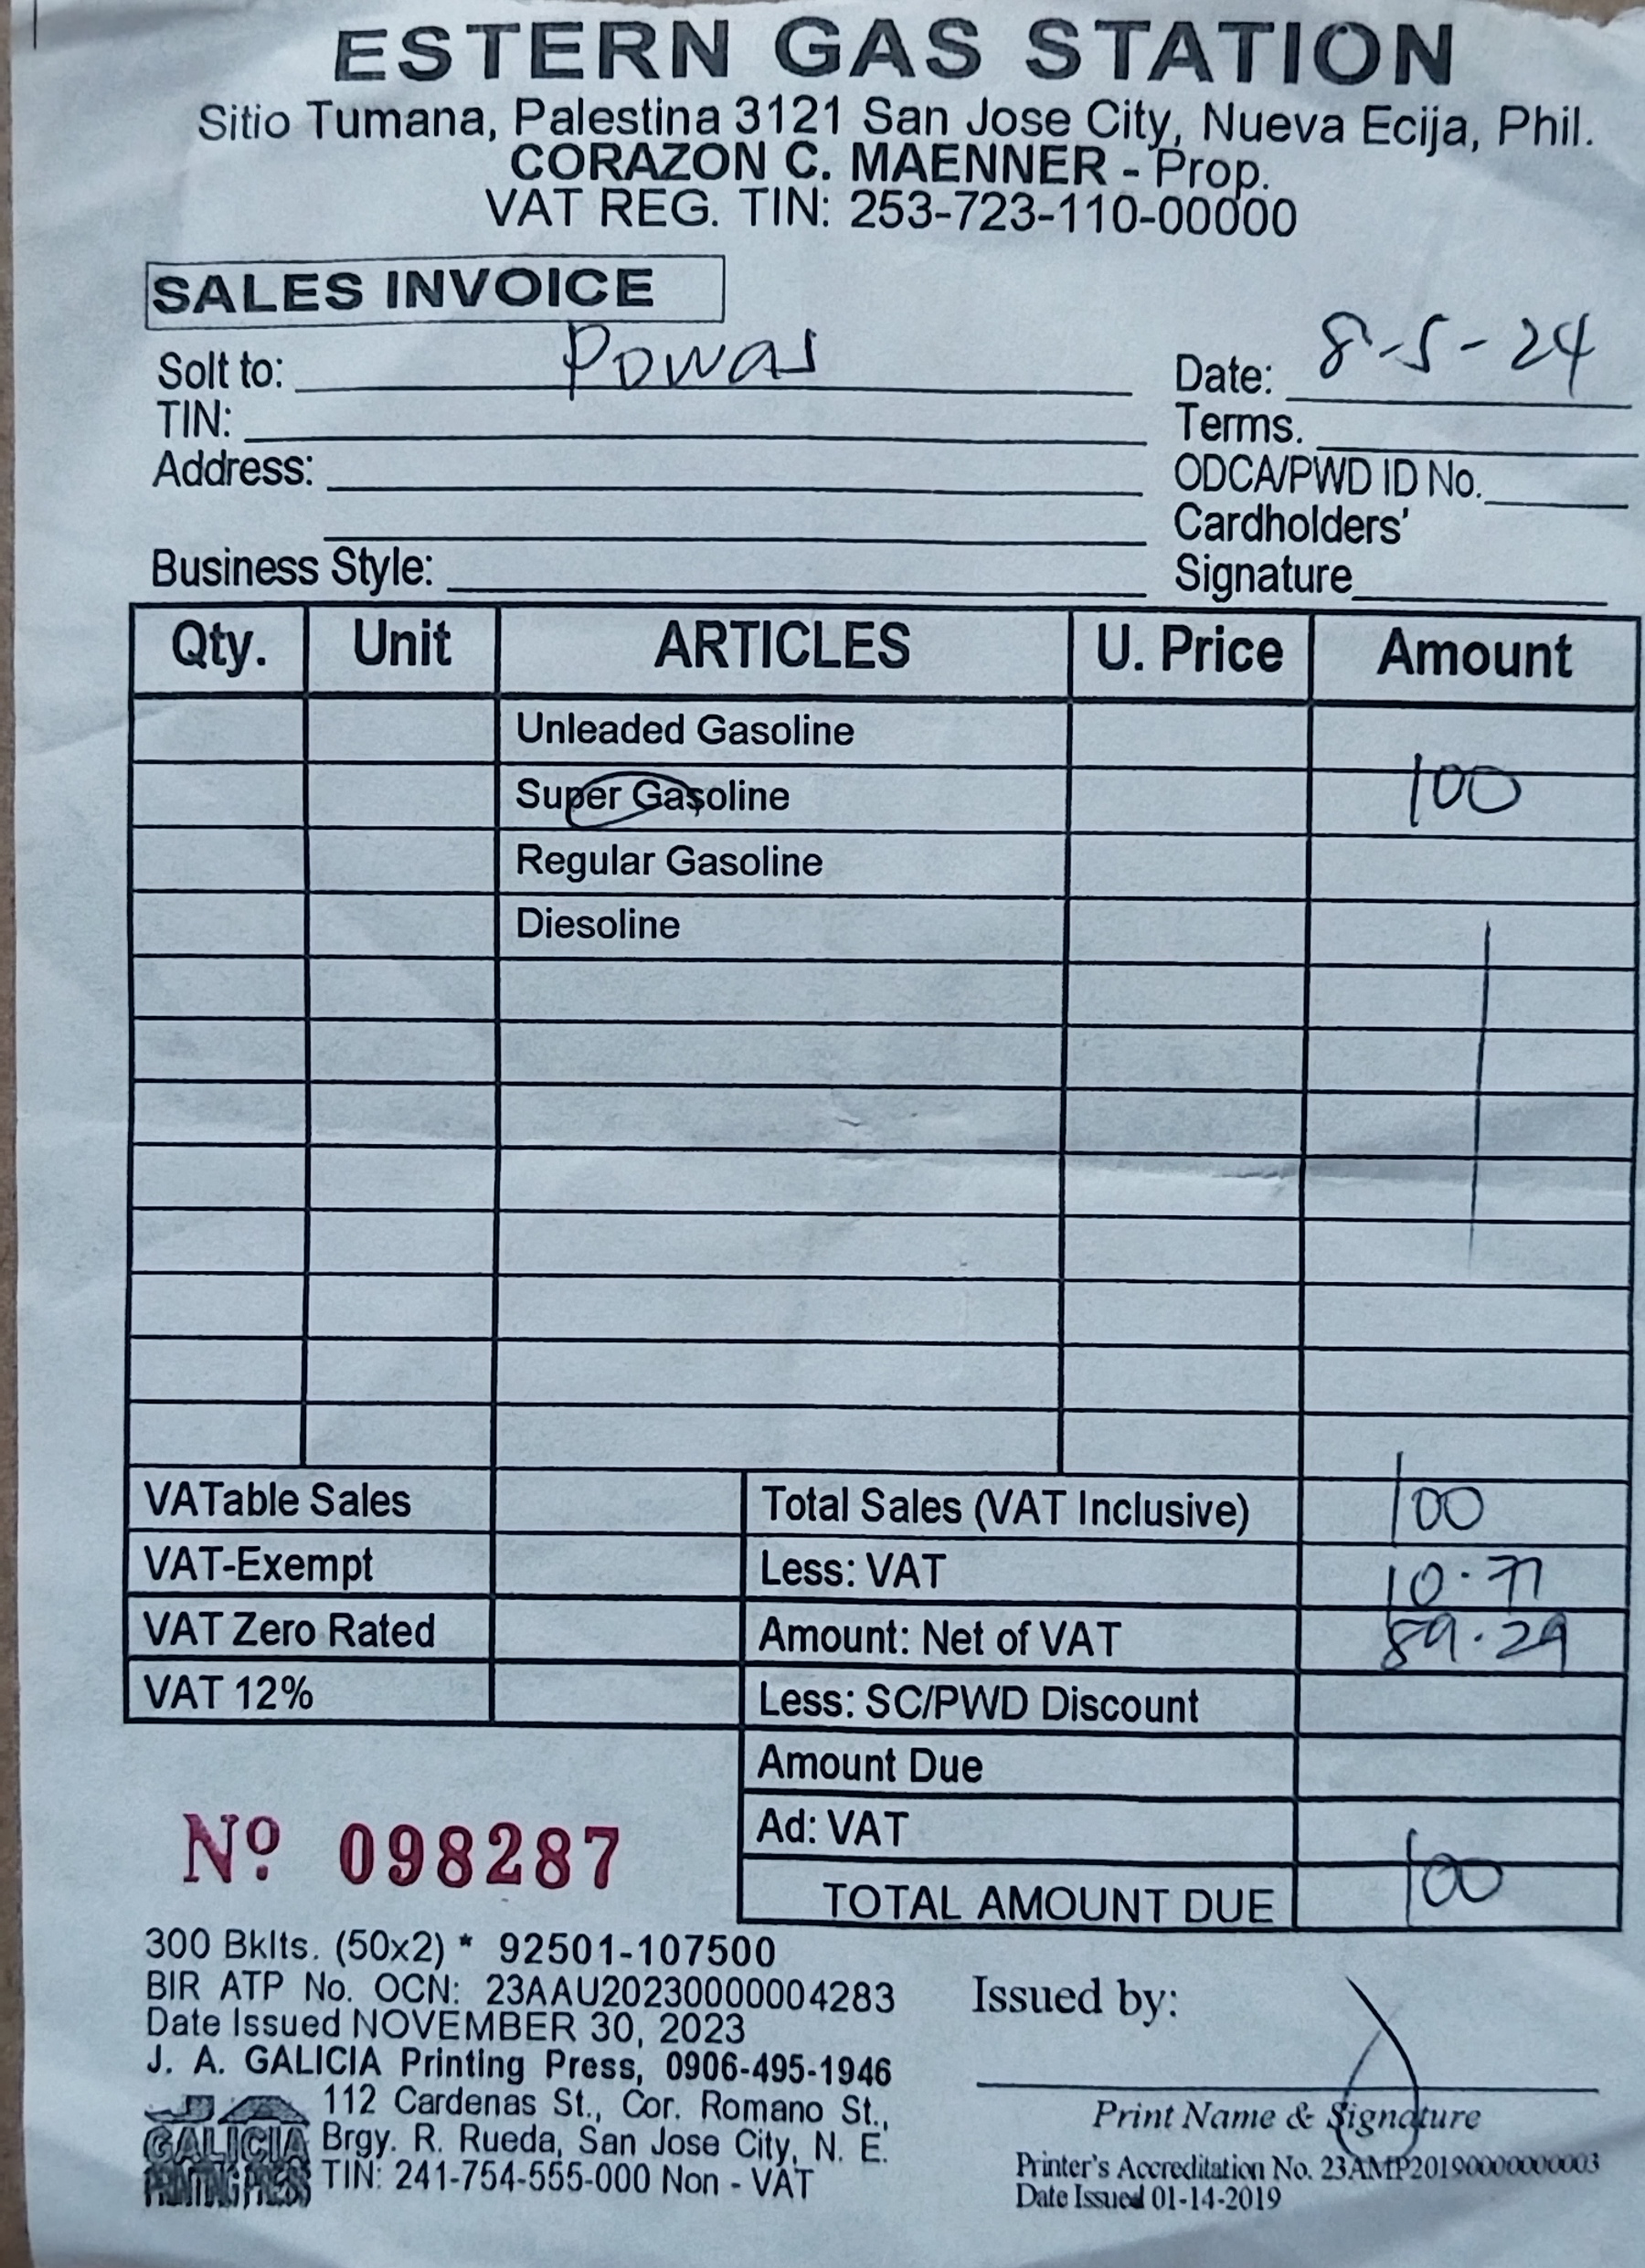 ESTERN GAS STATION
Sitio Tumana, Palestina 3121 San Jose City, Nueva Ecija, Phil.
CORAZON C. MAENNER - Prop.
VAT REG. TIN: 253-723-110-00000
SALES INVOICE
Solt to: Powas
Date: 8-5-24
TIN:
Terms.
Address:
ODCA/PWD ID No.
Cardholders'
Business Style:
Signature
Qty. Unit ARTICLES U. Price Amount
Unleaded Gasoline
Super Gasoline 100
Regular Gasoline
Diesoline
VATable Sales Total Sales (VAT Inclusive) 100
VAT-Exempt Less: VAT 10.71
VAT Zero Rated Amount: Net of VAT 89.29
VAT 12% Less: SC/PWD Discount
Amount Due
Ad: VAT
TOTAL AMOUNT DUE 100
Nº 098287
300 Bklts. (50x2) * 92501-107500
BIR ATP No. OCN: 23AAU20230000004283
Date Issued NOVEMBER 30, 2023
J. A. GALICIA Printing Press, 0906-495-1946
112 Cardenas St., Cor. Romano St.,
Brgy. R. Rueda, San Jose City, N. E.
TIN: 241-754-555-000 Non - VAT
GALICIA
PRINTING PRESS
Issued by:
Print Name & Signature
Printer's Accreditation No. 23AMP20190000000003
Date Issued 01-14-2019